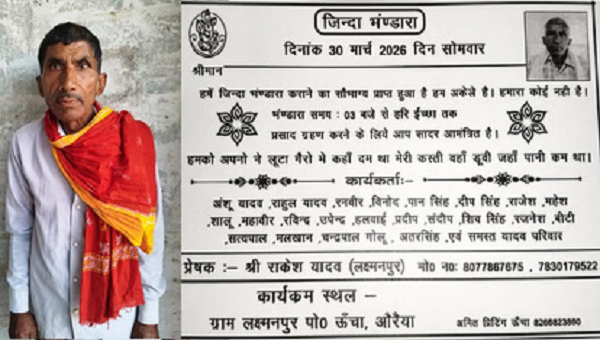 जिन्दा भंण्डारा
दिनांक 30 मार्च 2026 दिन सोमवार
श्रीमान
हमें जिन्दा भण्डारा कराने का सौभाग्य प्राप्त हुआ है हम अकेले है। हमारा कोई नही है।
भंण्डारा समय : 03 बजे से हरि ईच्छा तक
प्रसाद ग्रहण करने के लिये आप सादर आमंत्रित है।
हमको अपनो ने लूटा गैरो मे कहाँ दम था मेरी कस्ती वहाँ डूवी जहाँ पानी कम था।
कार्यकर्ताः-
अंशू यादव ,राहुल यादव ,रनवीर ,विनोद ,पान सिंह ,दीप सिंह ,राजेश ,महेश
,शालू ,महावीर ,रविन्द्र ,उपेन्द्र ,हलवाई ,प्रदीप ,संदीप ,शिव सिंह ,रजनेश ,बीटी
,सत्यपाल ,मलखान ,चन्द्रपाल गोलू , अतरसिंह ,एवं समस्त यादव परिवार
प्रेषक :– श्री राकेश यादव (लक्ष्मनपुर) मो0 नः 8077887675 , 7830179522
कार्यकम स्थल –
ग्राम लक्ष्मनपुर पो0 ऊँचा, औरैया
प्रिटिंग ऊँचा